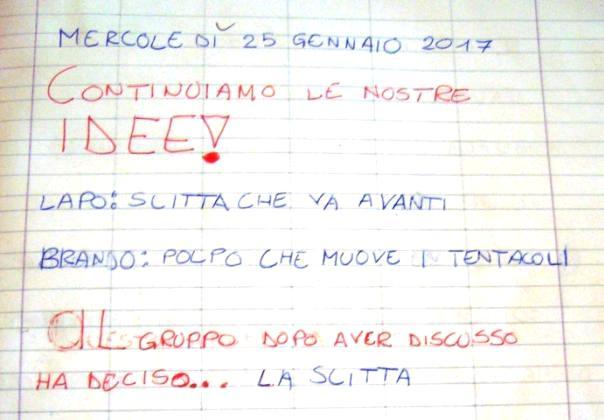 MERCOLEDÌ 25 GENNAIO 2017
CONTINUIAMO LE NOSTRE
IDEE!
LAPO: SCITTA CHE VA AVANTI
BRANDO: POLPO CHE MUOVE I TENTACOLI
IL GRUPPO DOPO AVER DISCUSSO
HA DECISO... LA SCITTA